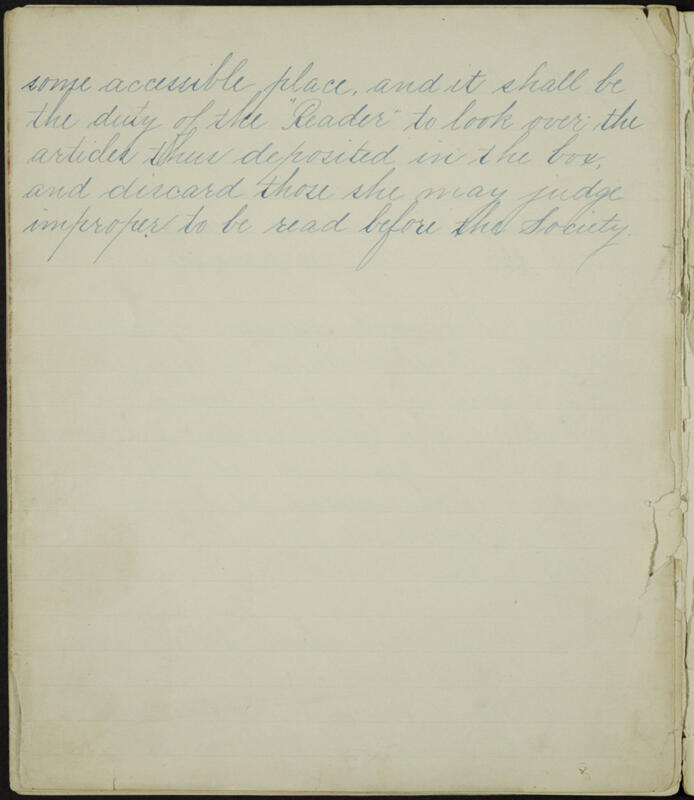 some accessible place, and it shall be
the duty of the "Reader" to look over the
articles thus deposited in the box,
and discard those she may judge
improper to be read before the Society.